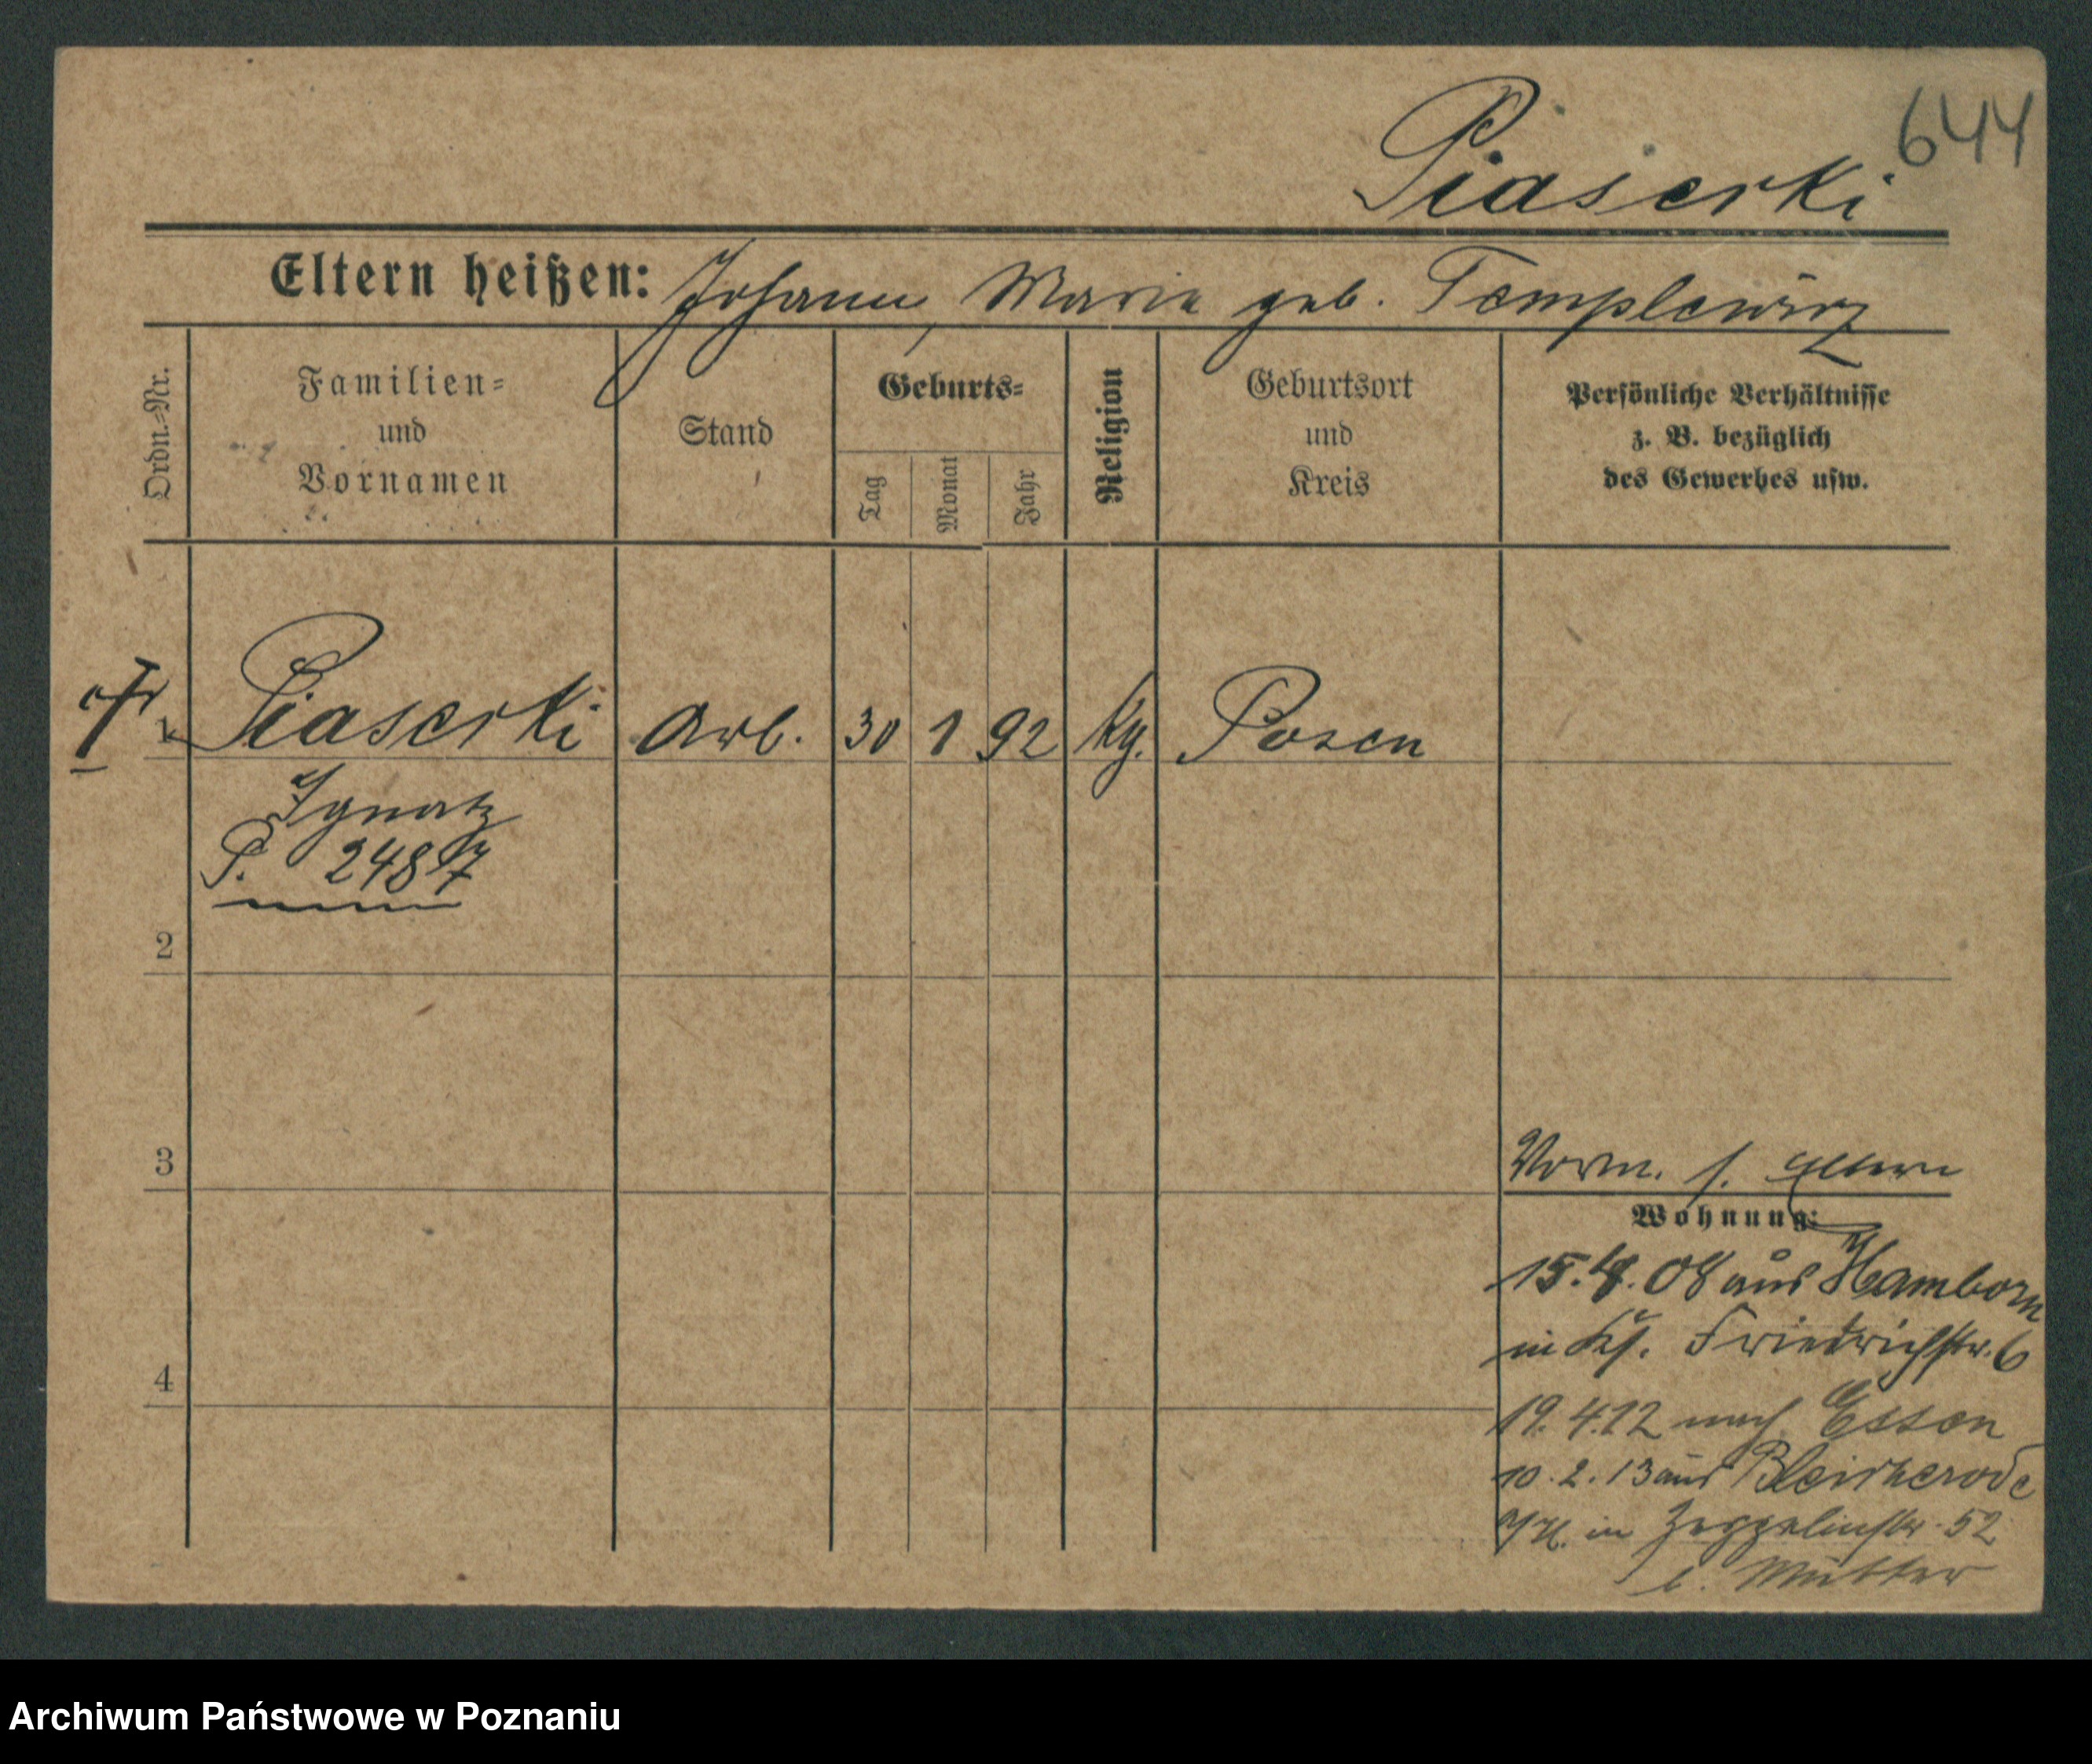 644
Piaserki
Eltern heißen: Johann, Marie geb. Templewicz
Ordn.=Nr.
Familien=
und
Vornamen
Stand
Geburts=
Tag
Monat
Jahr
Religion
Geburtsort
und
Kreis
Persönliche Verhältnisse
z. B. bezüglich
des Gewerbes usw.
1 Piaserki Arb. 30 1 92 kg. Posen
Ignatz
P. 2487
2
3
4
Vorm. s. Eltern
Wohnung:
15. 08 aus Hamborn
in Friedrichstr. 6
19. 4. 12 nach Essen
10. 2. 13 aus Bleicherode
in Zeppelinstr. 52
b. Mutter
Archiwum Państwowe w Poznaniu